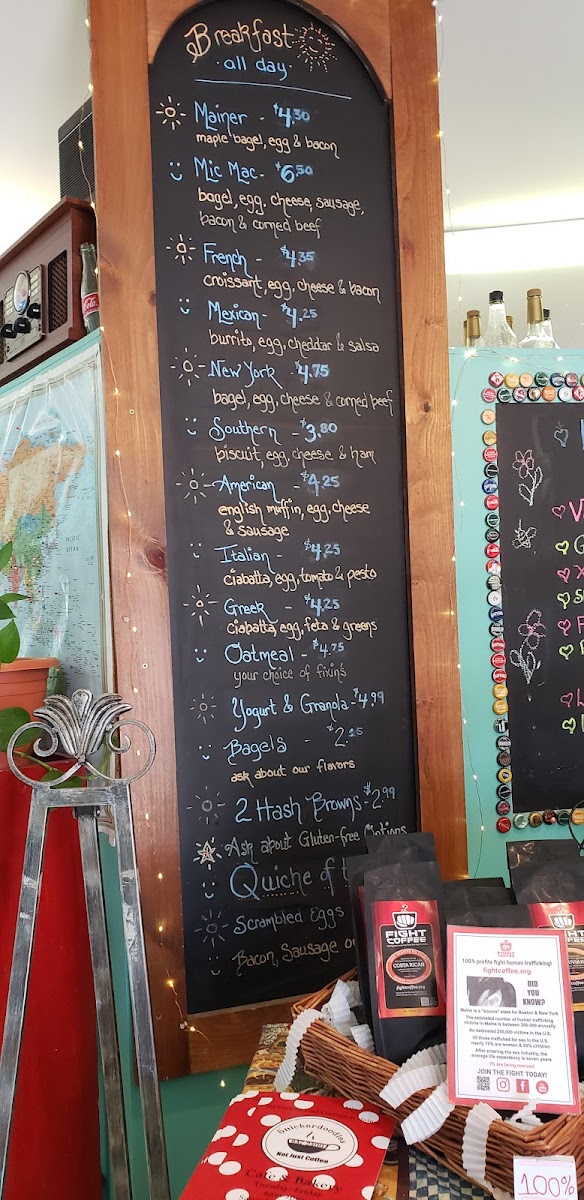 Breakfast
· all day ·
Mainer - $4.30
maple bagel, egg & bacon
Mic Mac - $6.50
bagel, egg, cheese, sausage,
bacon & corned beef
French - $4.35
croissant, egg, cheese & bacon
Mexican - $4.25
burrito, egg, cheddar & salsa
New York - $4.75
bagel, egg, cheese & corned beef
Southern - $3.80
biscuit, egg, cheese & ham
American - $4.25
english muffin, egg, cheese
& sausage
Italian - $4.25
ciabatta, egg, tomato & pesto
Greek - $4.25
ciabatta, egg, feta & greens
Oatmeal - $4.75
your choice of fixin's
Yogurt & Granola - $4.99
Bagels - $2.25
ask about our flavors
2 Hash Browns - $2.99
Ask about Gluten-free Options
Quiche of t
Scrambled Eggs
Bacon, Sausage or
FIGHT
COFFEE
COSTA RICAN
fightcoffee.org
100% profits fight human trafficking!
fightcoffee.org
DID
YOU
KNOW?
Maine is a "source" state for Boston & New York
The estimated number of human trafficking
victims in Maine is between 300-400 annually
An estimated 250,000 victims in the U.S.
Of those trafficked for sex in the U.S.
nearly 70% are women & 30% children
After entering the sex industry, the
average life expectancy is seven years
1% are being rescued
JOIN THE FIGHT TODAY!
Snickerdoodles
Not Just Coffee
Cafe & Bakery
Tuesday-Friday
100%